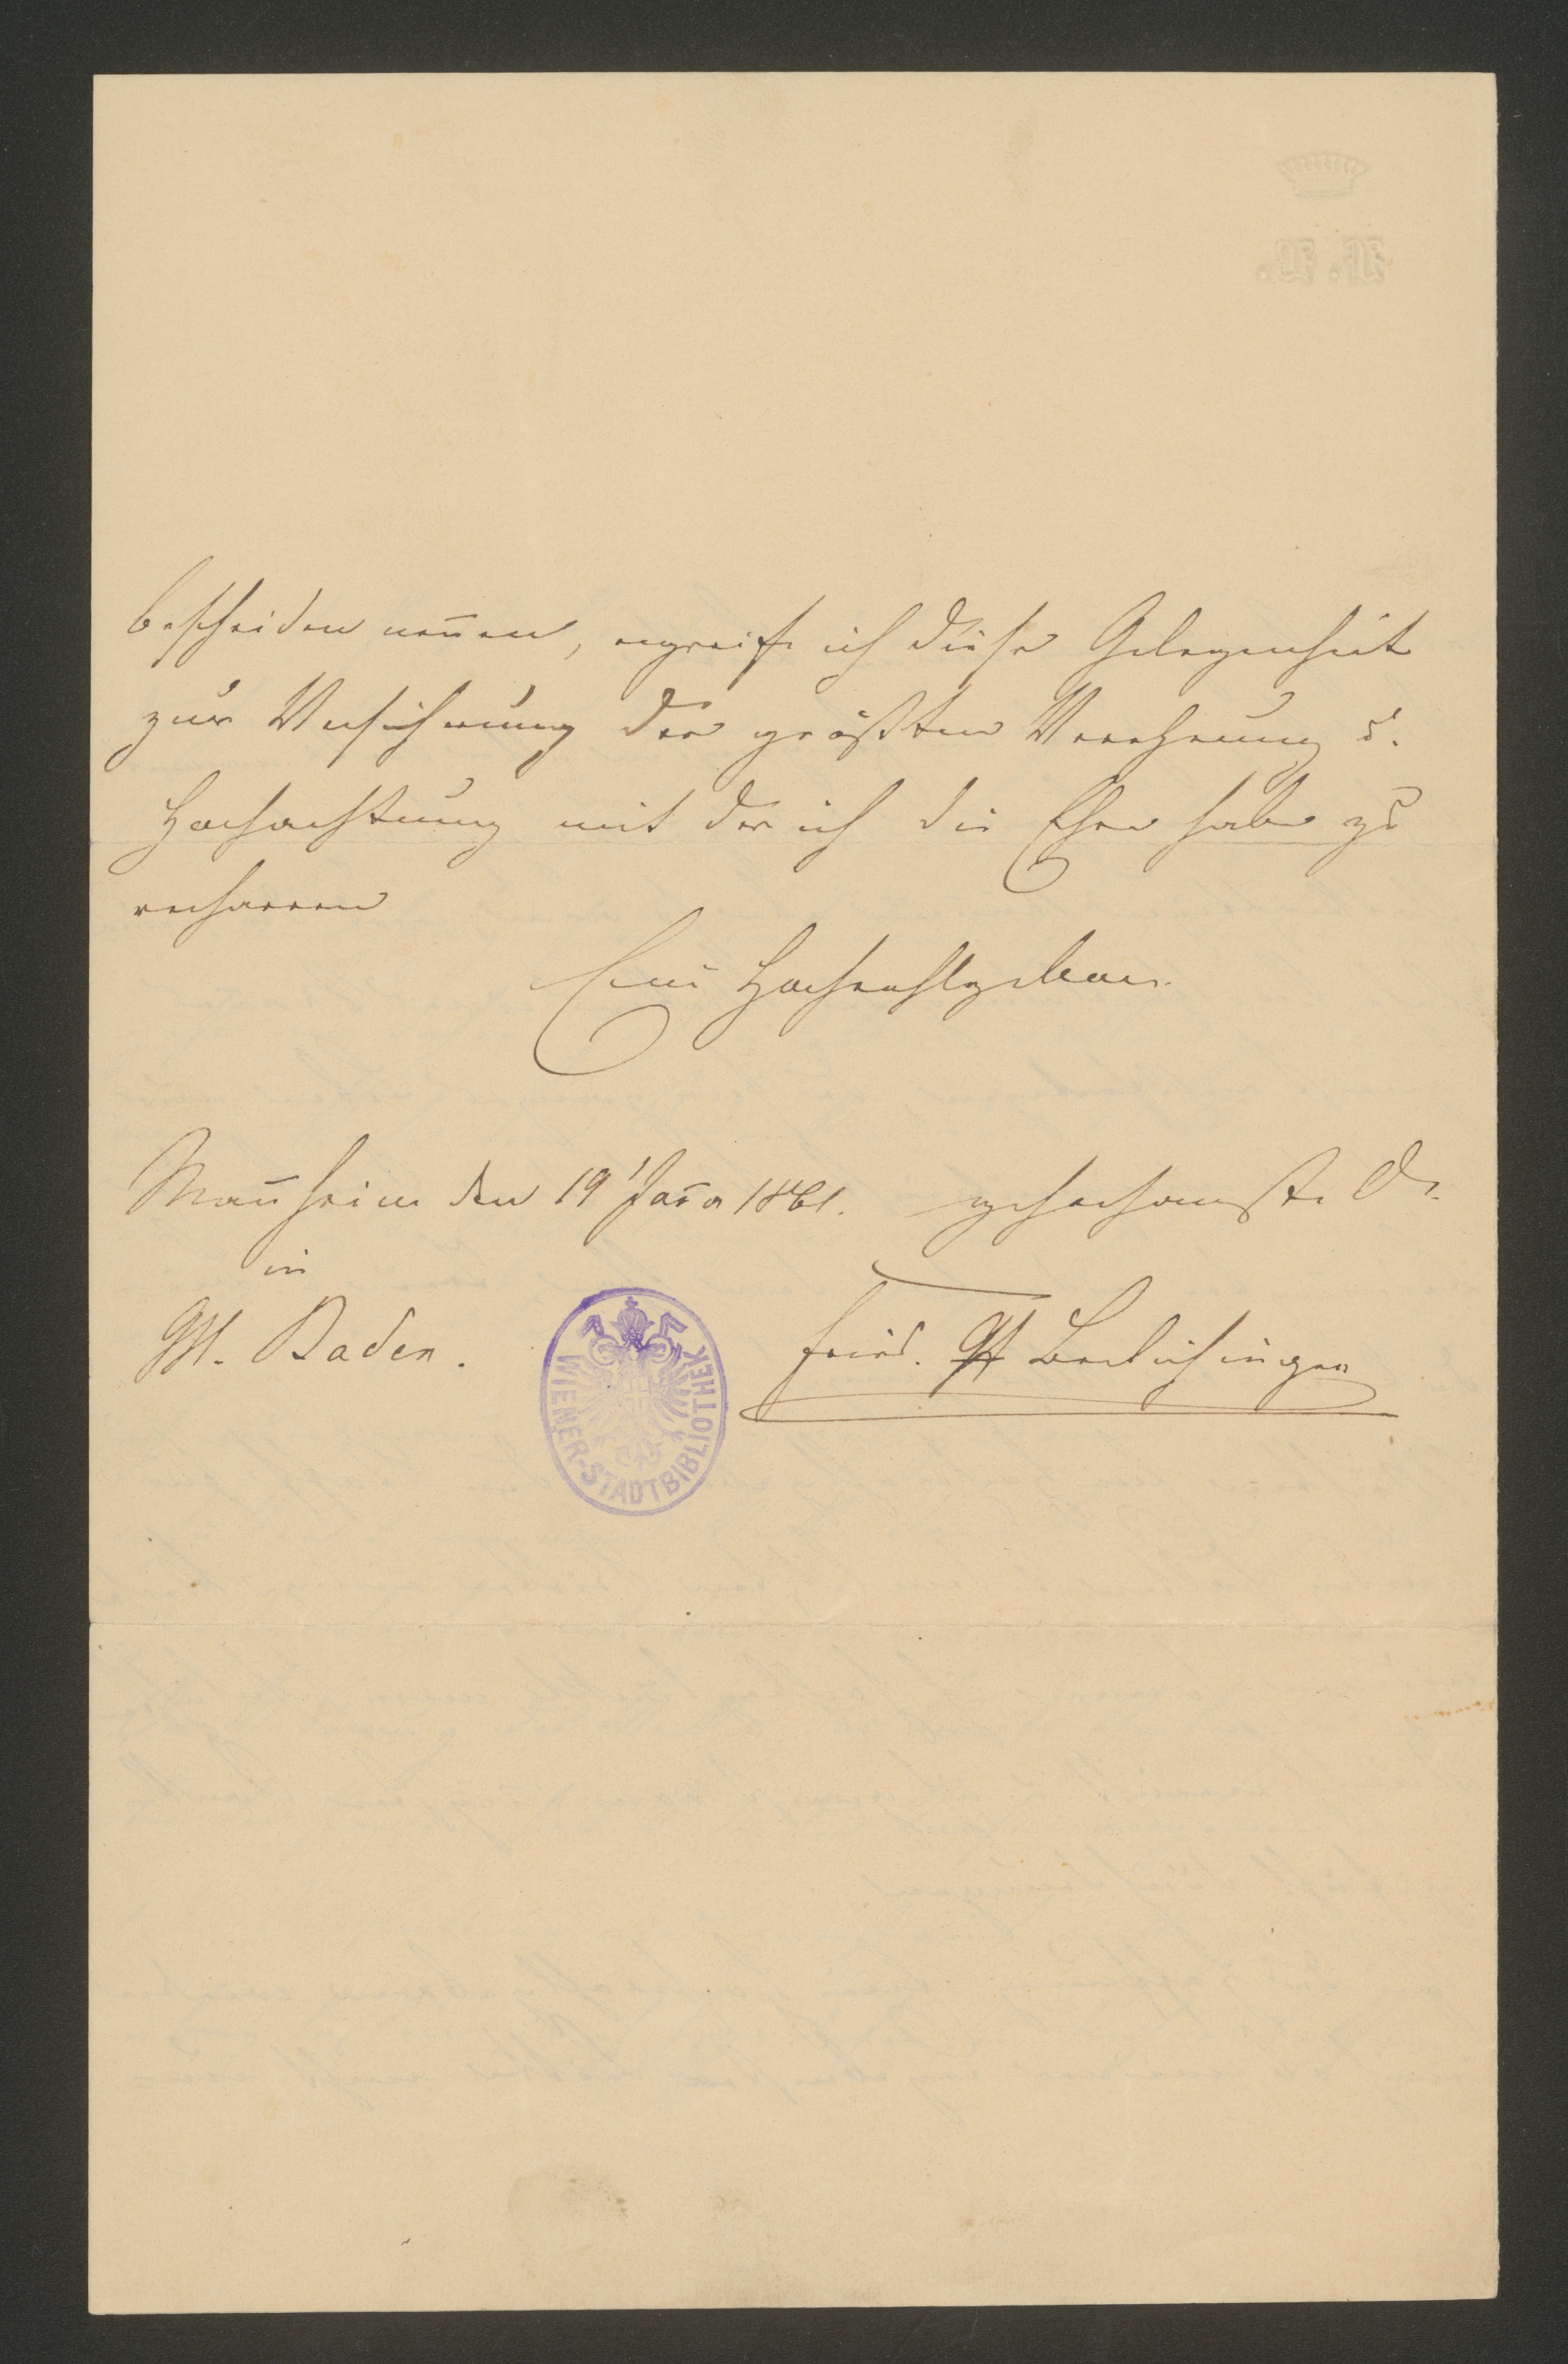 bescheiden nen̄en, ergreife ich diese Gelegenheit
zur Versicherung der größten Verehrung u.
Hochachtung mit der ich die Ehre habe zu
verharren
Euer Hochwohlgeboren
Man̄heim den 19' 1861. gehorsamster Dr.
in
GH. Baden.
Fried. Gf Berlichingen
WIENER-STADTBIBLIOTHEK